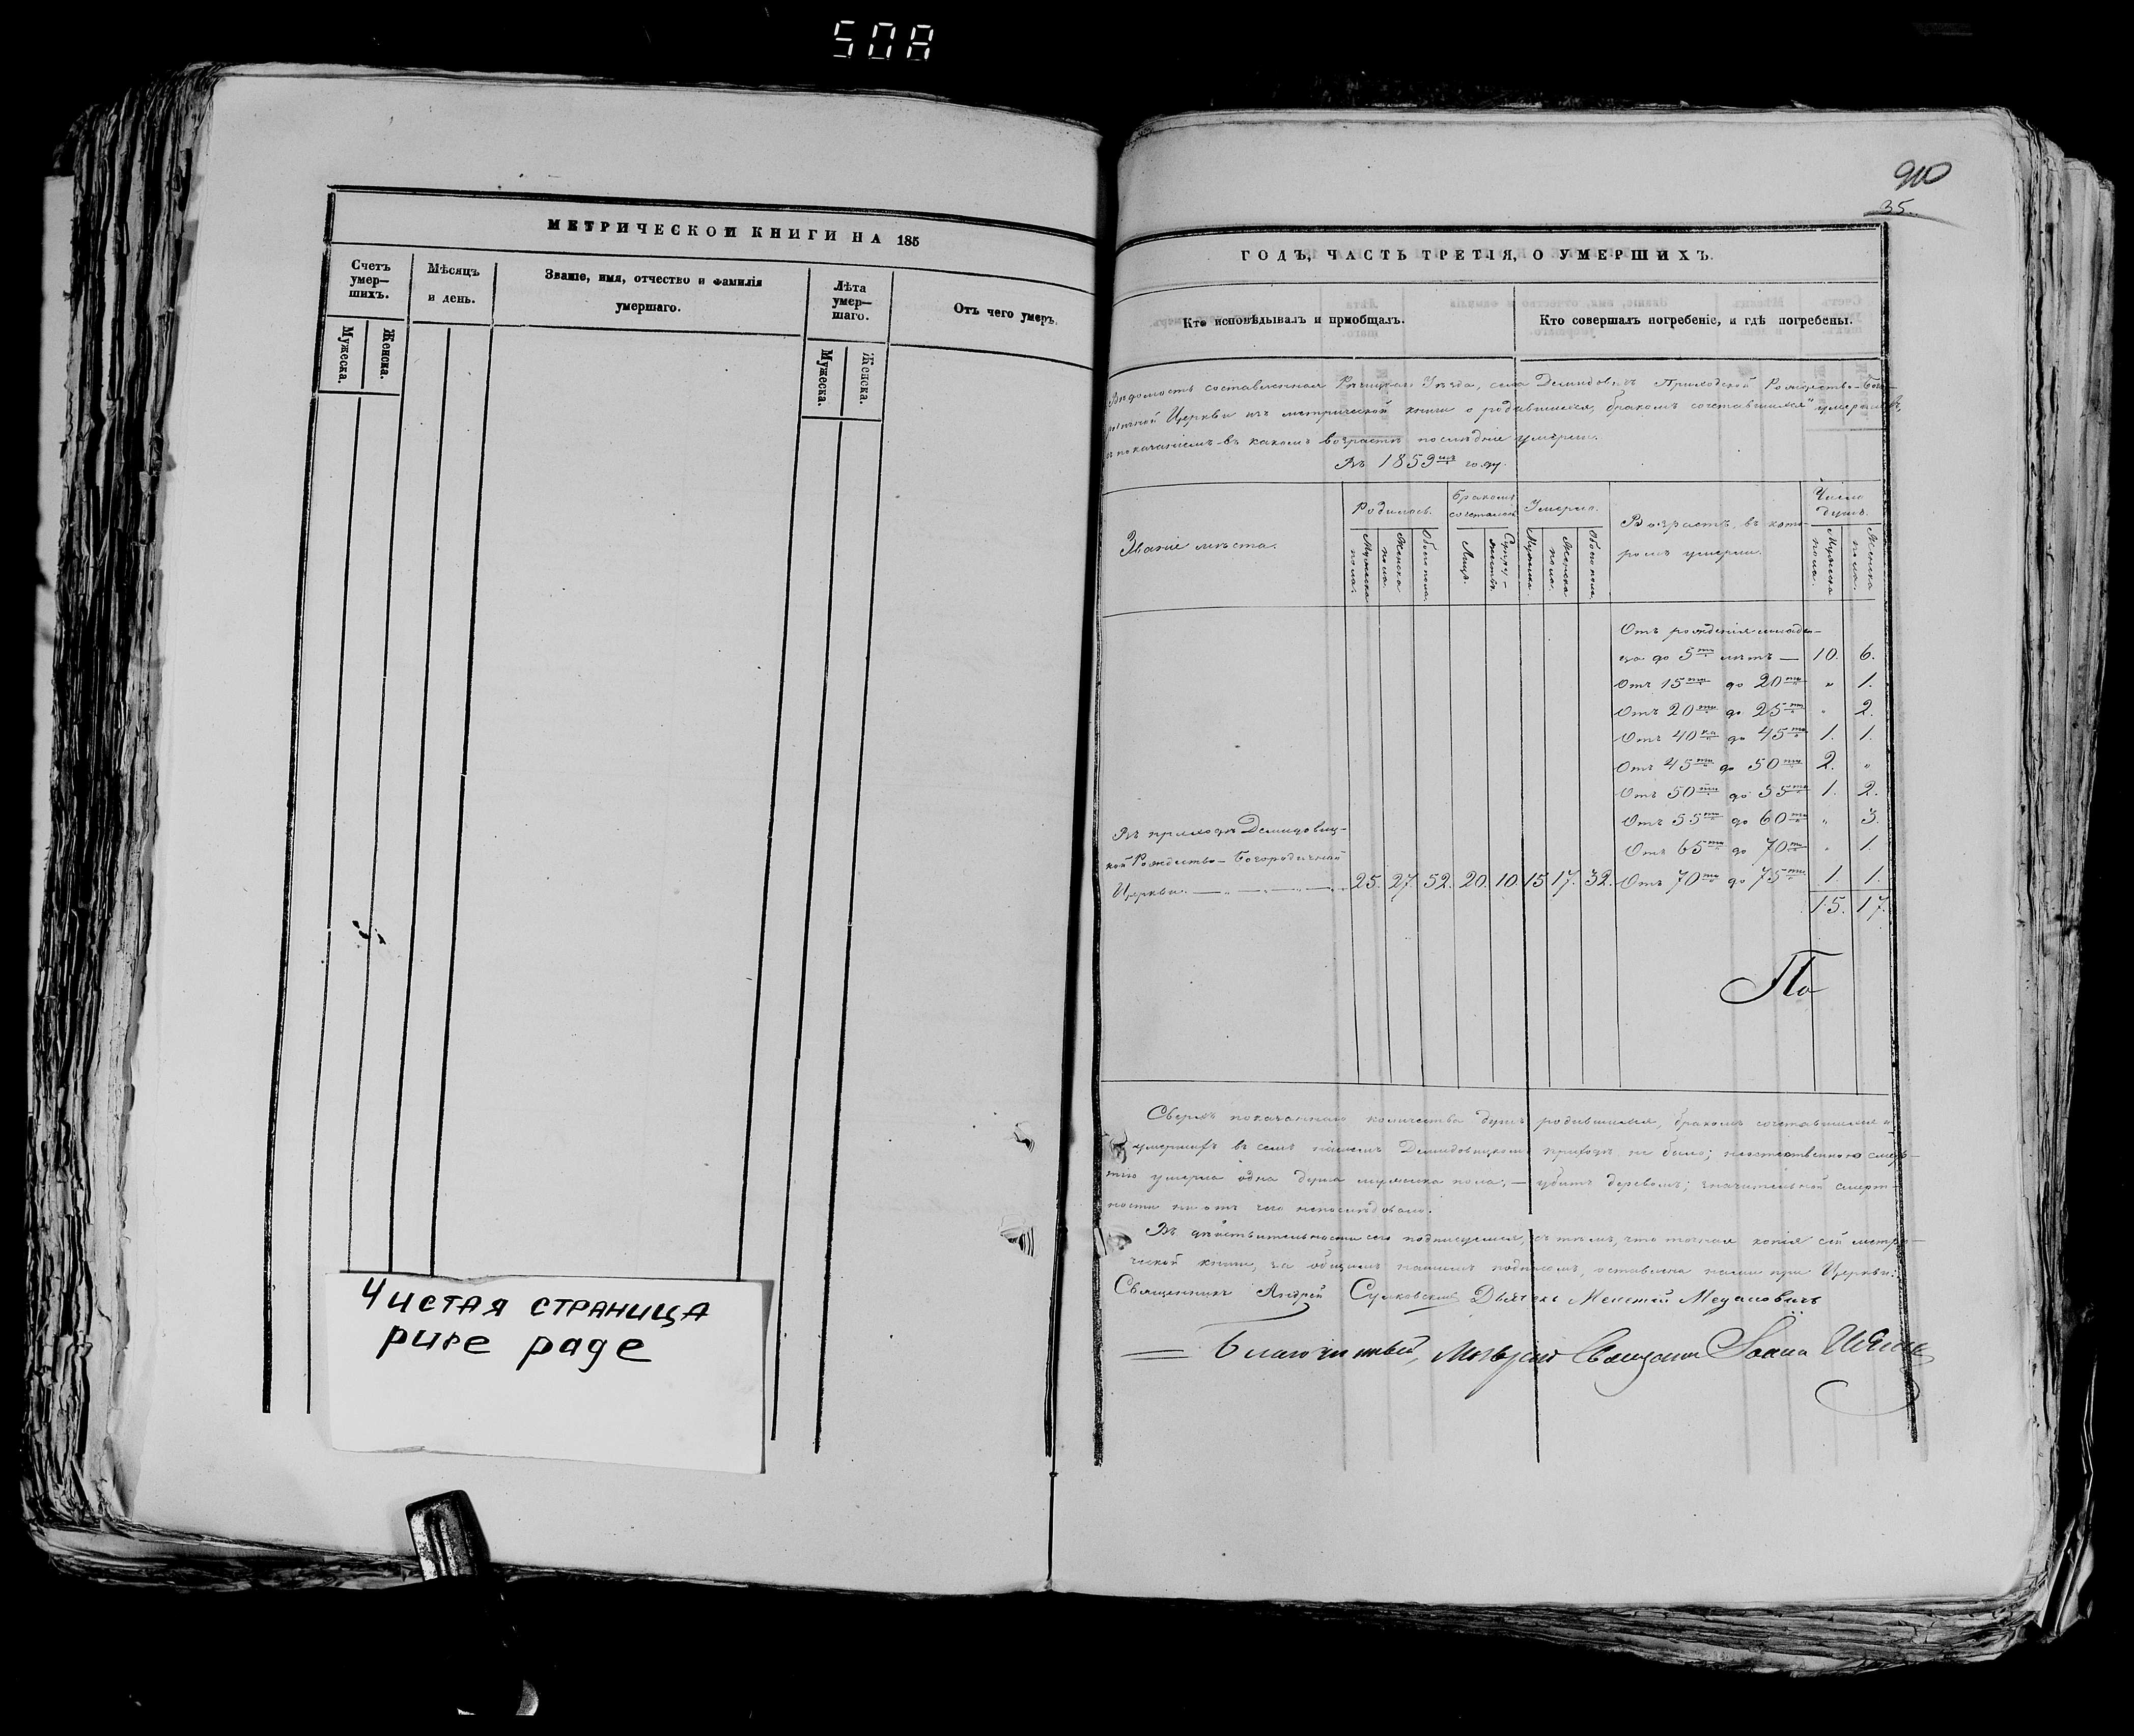 508
МЕТРИЧЕСКОЙ КНИГИ НА 185
Счетъ умер—шихъ.
Мужеска.
Женска.
Мѣсяцъ и день.
Званіе, имя, отчество и фамилія
умершаго.
Лѣта умер—шаго.
Мужеска.
Женска.
Отъ чего умеръ.
Чистая страница
pure page
910
35.
ГОДЪ, ЧАСТЬ ТРЕТІЯ, О УМЕРШИХЪ.
Кто исповѣдывалъ и пріобщалъ.
Кто совершалъ погребеніе, и гдѣ погребены.
Вѣдомость составленная Рѣчицкаго Уѣзда, села Демидовичъ Приходской Рождество-Бого-
родичной Церкви изъ метрической книги о родившихся, бракомъ сочетавшихся и умершихъ,
съ показаніемъ въ какомъ возрастѣ послѣдніе умерли.
Въ 1859мъ году.
Званіе мѣста.
Родилось.
Мужеска пола.
Женска пола.
Обоего пола.
Бракомъ сочеталось
Лицъ.
Супру-жествъ.
Умерло.
Мужеска.
Женска пола.
Обоего пола.
Возрастъ, въ кото-
ромъ умерли.
Число душъ.
Мужеска пола.
Женска пола.
Отъ рожденія младен-
ца до 5ти лѣтъ — 10. 6.
Отъ 15ти до 20ти „ 1.
Отъ 20ти до 25ти „ 2.
Отъ 40ка до 45ти 1. 1.
Отъ 45ти до 50ти 2. „
Отъ 50ти до 55ти 1. 2.
Отъ 55ти до 60ти „ 3.
Отъ 65ти до 70ти „ 1.
Въ приходѣ Демидовиц-
кой Рождество-Богородичной
Церкви. — 25. 27. 52. 20. 10. 15. 17. 32. Отъ 70ти до 75ти 1. 1.
15. 17.
По
Сверхъ показаннаго количества душъ родившихся, бракомъ сочетавшихся и
умершихъ въ семъ нашемъ Демидовицкомъ приходѣ не было; неестественною смер-
тію умерла одна душа мужеска пола; — убитъ деревомъ; значительной смерт-
ности ни отъ чего непослѣдовало.
Въ дѣйствительности сего подписуемся, съ тѣмъ, что точная копія сей метри-
ческой книги, за общимъ нашимъ подписомъ, оставлена нами при Церкви:
Священникъ Андрей Сулковскій Дьячекъ
Благочинный, Священникъ Іоаннъ